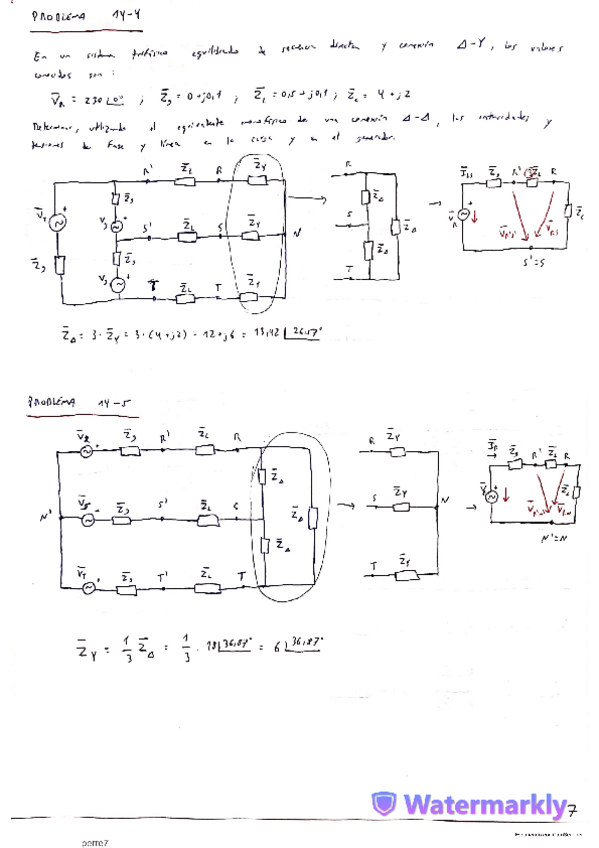 PROBLEMA 14-4
En un sistema trifásico equilibrado de secuencia directa y conexión Δ-Y, los valores
conocidos son:
V̄R = 230∠0° ; Z̄g = 0+j0,1 ; Z̄L = 0,5+j0,1 ; Z̄c = 4+j2
Determinar, utilizando el equivalente monofásico de una conexión Δ-Δ, las intensidades y
tensiones de fase y línea en la carga y en el generador.
R' Z̄L R Z̄Y
S' Z̄L S Z̄Y N
T Z̄L T Z̄Y
Z̄g
Z̄g
Z̄g
R
S
T
Z̄Δ
Z̄Δ
Z̄Δ
Z̄g R' 3Z̄L R
S'=S
Z̄Δ = 3·Z̄Y = 3·(4+j2) = 12+j6 = 13,42∠26,57°
PROBLEMA 14-5
V̄R Z̄g R' Z̄L R
N' V̄S Z̄g S' Z̄L S
V̄T Z̄g T' Z̄L T
Z̄Δ
Z̄Δ
Z̄Δ
R Z̄Y
S Z̄Y N
T Z̄Y
Z̄g R' Z̄L R
N'=N
Z̄Y = 1/3 Z̄Δ = 1/3 · 18∠36,87° = 6∠36,87°
Watermarkly
7
perre7